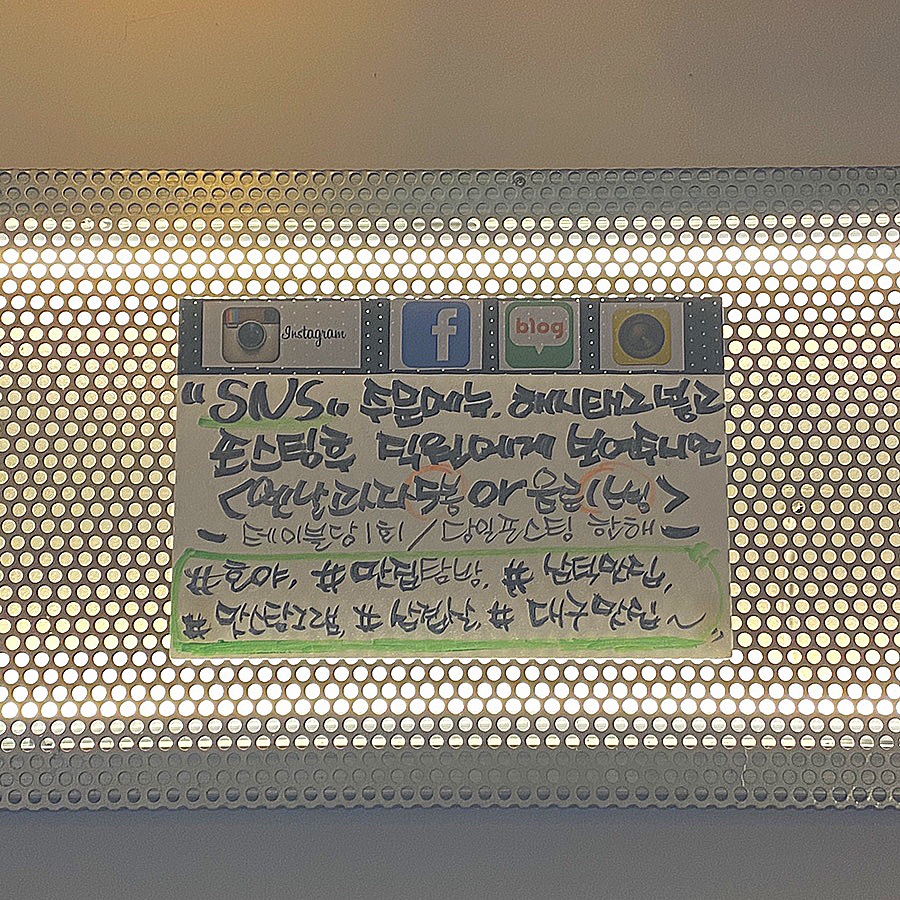 Instagram f blog
"SNS" 주문메뉴, 해시태그 넣고
포스팅후 직원에게 보여주시면
<옛날과자 or 음료1병>
- 테이블당 1회 / 당일포스팅 한해 -
#호야, #맛집탐방, #
#맛스타그램, # #대구맛집~